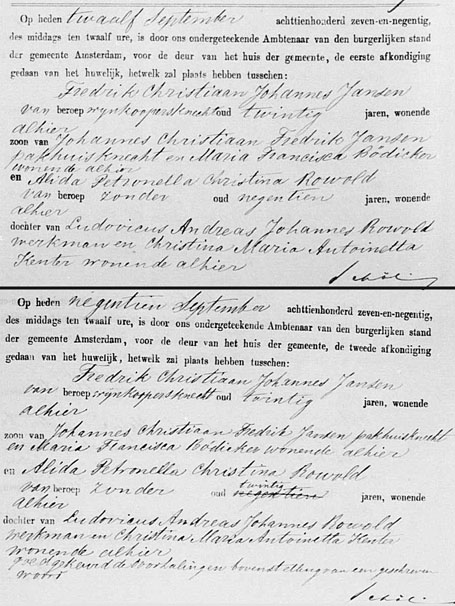 Op heden twaalf September achttienhonderd zeven-en-negentig,
des middags ten twaalf ure, is door ons ondergeteekende Ambtenaar van den burgerlijken stand
der gemeente Amsterdam, voor de deur van het huis der gemeente, de eerste afkondiging
gedaan van het huwelijk, hetwelk zal plaats hebben tusschen:
Fredrik Christiaan Johannes Jansen
van beroep wijnkoopersknecht oud twintig jaren, wonende
alhier
zoon van Johannes Christiaan Fredrik Jansen
pakhuisknecht en Maria Francisca Bödicker
wonende alhier
en Alida Petronella Christina Rowold
van beroep zonder oud negentien jaren, wonende
alhier
dochter van Ludovicus Andreas Johannes Rowold
werkman en Christina Maria Antoinetta
Kenter wonende alhier
Op heden negentien September achttienhonderd zeven-en-negentig,
des middags ten twaalf ure, is door ons ondergeteekende Ambtenaar van den burgerlijken stand
der gemeente Amsterdam, voor de deur van het huis der gemeente, de tweede afkondiging
gedaan van het huwelijk, hetwelk zal plaats hebben tusschen:
Fredrik Christiaan Johannes Jansen
van beroep wijnkoopersknecht oud twintig jaren, wonende
alhier
zoon van Johannes Christiaan Fredrik Jansen pakhuisknecht
en Maria Francisca Bödicker wonende alhier
en Alida Petronella Christina Rowold
twintig
van beroep zonder oud negentien jaren, wonende
alhier
dochter van Ludovicus Andreas Johannes Rowold
werkman en Christina Maria Antoinetta Kenter
wonende alhier
goedgekeurd de doorhaling en bovenstelling van een geschreven
woord